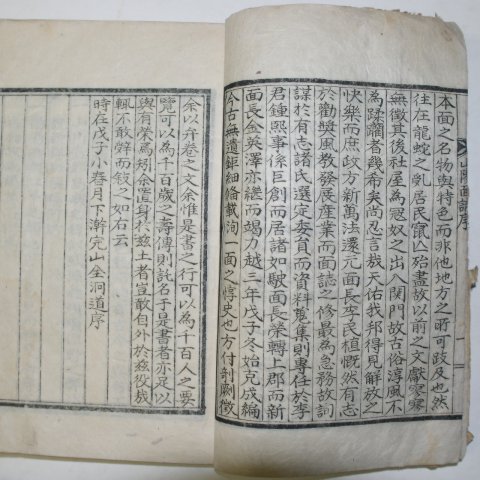 本面之名物與特色而非他地方之所可跂及也然
往在龍蛇之乱居民竄亾殆盡故以前之文獻寥寥
無徵其後社屋為冦奴之出入関門故古俗淳風不
為蹂躪者幾希矣尚忍言哉天佑我邦得見解放之
快樂而庶政方新萬法還元面長李民植慨然有志
於勸奬風敎發展産業而面誌之修最為急務故詢
謀於有志諸氏選定委員而資料蒐集則專任於李
君鍾熙事係巨創而居諸如駛面長榮轉上郡而新
面長金英澤亦繼而竭力越三年戊子冬始克成編
今古無遺鉅細俻載洵一面之惇史也方付剞劂徵
余以弁卷之文余惟是書之行可以為千百人之要
覽可以為千百歲之壽傳則託名于是書者亦足以
與有榮焉矧余置身於兹土者豈敢自外於兹役哉
輒不敢辭而敍之如右云
時在戊子小春月下澣完山全洞道序